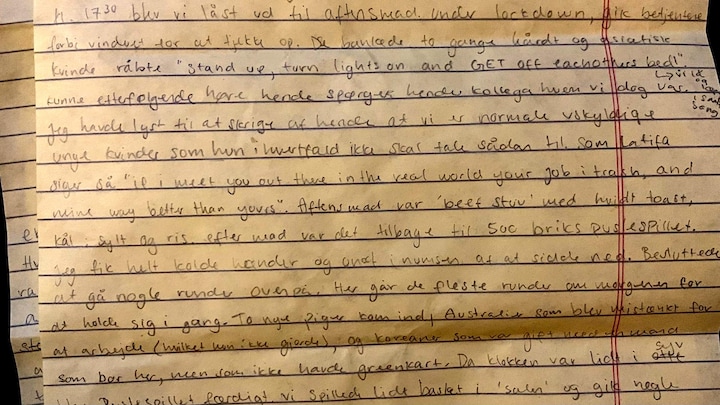 Kl. 1730 blev vi låst ud til aftensmad. Under lockdown, gik betjentene
forbi vinduet for at tjekke op. De bankede to gange hårdt og asiatisk
kvinde råbte "stand up, turn lights on and GET off eachothers bed!".
kunne efterfølgende høre hende spørge hendes kollega hvem vi dog var.
Jeg havde lyst til at skrige af hende at vi er normale uskyldige
unge kvinder som hun ihvertfald ikke skal tale sådan til. Som Latifa
siger så "if i meet you out there in the real world your job is trash, and
mine way better than yours". Aftensmad var 'beef stuv' med hvidt toast,
kål i sylt og ris. efter mad var det tilbage til 500 briks puslespillet.
Jeg fik helt kolde hænder og ondt i numsen af at sidde ned. Besluttede
at gå nogle runder ovenpå. Her går de fleste runder om morgenen for
at holde sig i gang. To nye piger kom ind, Australier som blev mistænkt for
at arbejde (hvilket hun ikke gjorde), og koreaner som var gift med en mand
som bor her, men som ikke havde greenkart. Da klokken var lidt i
Puslespillet færdigt vi spillede lidt basket i 'salen' og gik nogle